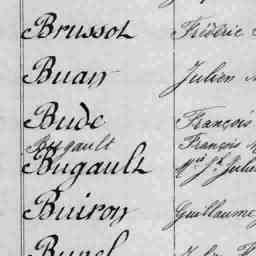 Brussot Frédéric
Buan Julien
Bude François
Bugault François
Bugault Julien
Buiron Guillaume
Bunel